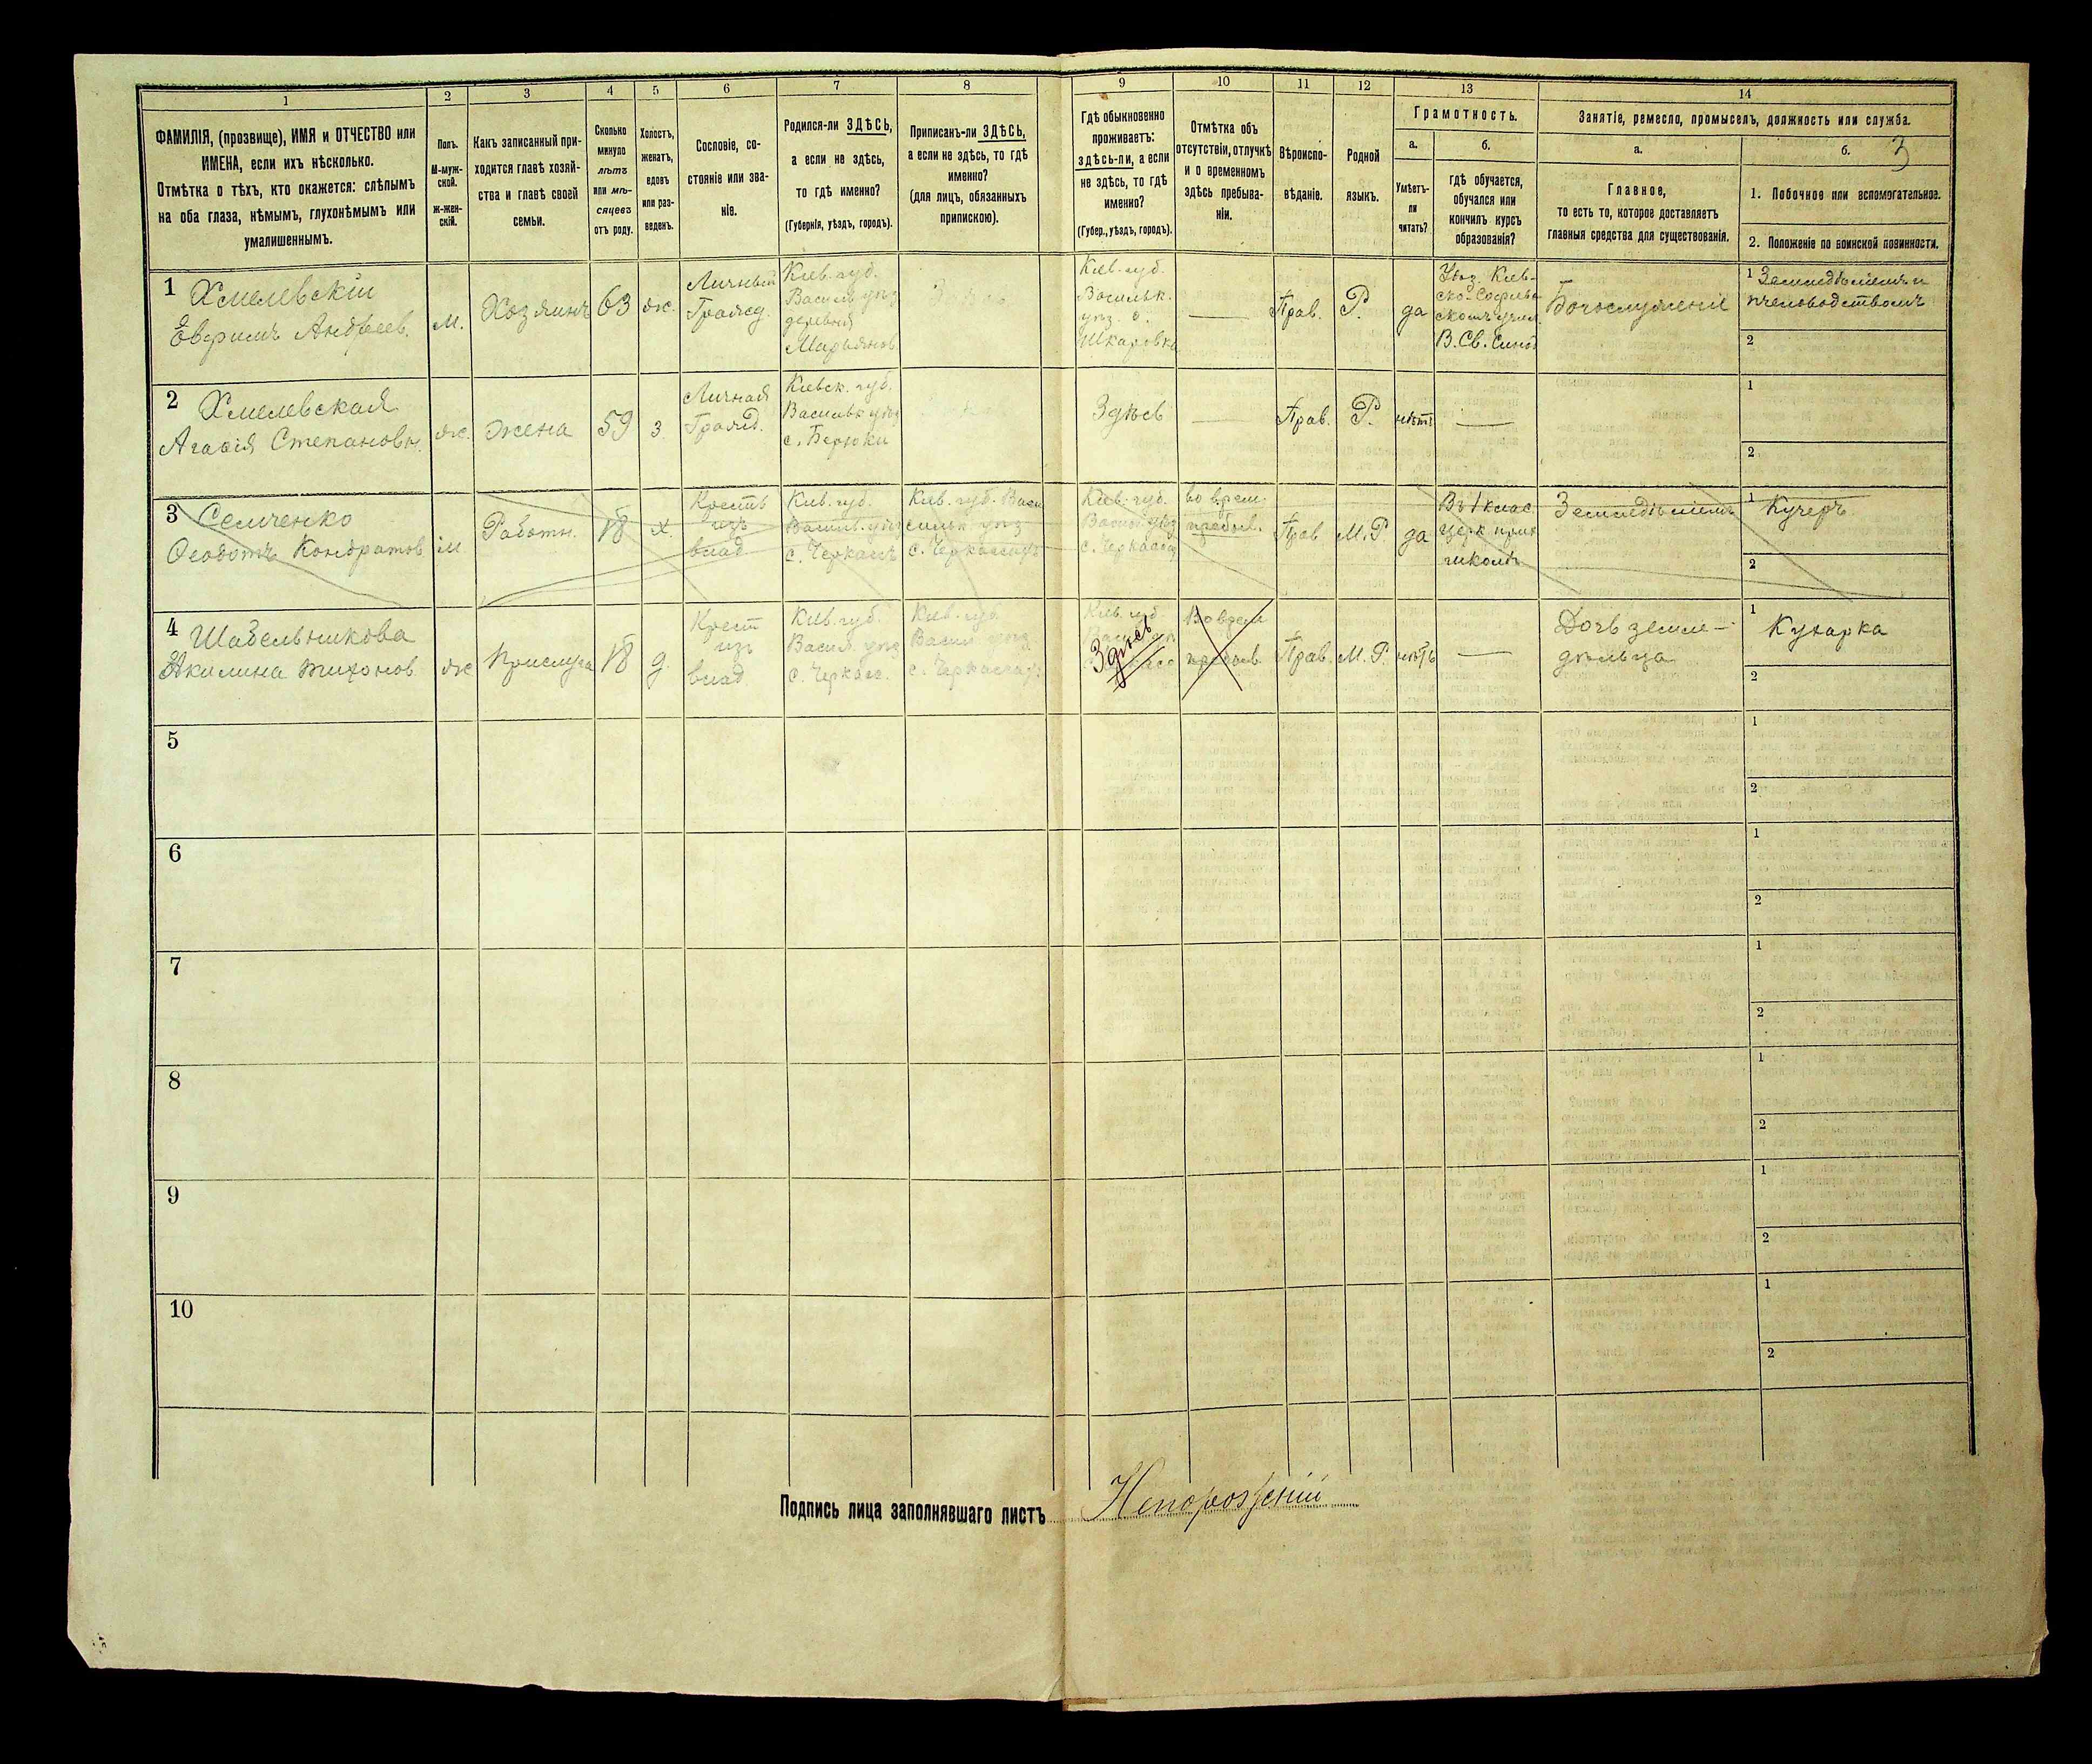 1
2
3
4
5
6
7
8
9
10
11
12
13
14
ФАМИЛІЯ, (прозвище), ИМЯ и ОТЧЕСТВО или
ИМЕНА, если ихъ нѣсколько.
Отмѣтка о тѣхъ, кто окажется: слѣпымъ
на оба глаза, нѣмымъ, глухонѣмымъ или
умалишеннымъ.
Полъ.
М-муж-
ской.
Ж-жен-
скій.
Какъ записанный при-
ходится главѣ хозяй-
ства и главѣ своей
семьи.
Сколько
минуло
лѣтъ
или мѣ-
сяцевъ
отъ роду.
Холостъ,
женатъ,
вдовъ
или раз-
веденъ.
Сословіе, со-
стояніе или зва-
ніе.
Родился-ли ЗДѢСЬ,
а если не здѣсь,
то гдѣ именно?
(Губернія, уѣздъ, городъ).
Приписанъ-ли ЗДѢСЬ,
а если не здѣсь, то гдѣ
именно?
(для лицъ, обязанныхъ
припискою).
Гдѣ обыкновенно
проживаетъ:
здѣсь-ли, а если
не здѣсь, то гдѣ
именно?
(Губер., уѣздъ, городъ).
Отмѣтка объ
отсутствіи, отлучкѣ
и о временномъ
здѣсь пребыва-
ніи.
Вѣроиспо-
вѣданіе.
Родной
языкъ.
Грамотность.
а.
Умѣетъ-
ли
читать?
б.
гдѣ обучается,
обучался или
кончилъ курсъ
образованія?
Занятіе, ремесло, промыселъ, должность или служба.
а.
Главное,
то есть то, которое доставляетъ
главныя средства для существованія.
б.
3
1. Побочное или вспомогательное.
2. Положеніе по воинской повинности.
1
Хмелевскій
Евфимъ Андреев.
м.
Хозяинъ
63
ж.
Личный
Гражд.
Кіев. губ.
Васильк. уѣз
деревня
Кіев. губ.
Васильк.
уѣз. с.
Шкаровка
Прав.
Р.
да
Уѣз. Кіев-
В. Св. Синод
Богослуженіе
1
Земледѣліемъ и
пчеловодствомъ
2
2
Хмелевская
Агафія Степановн.
ж.
жена
59
з.
Личная
Гражд.
Кіевск. губ.
Васильк уѣз
Здѣсь
Прав.
Р.
нѣтъ
1
2
3
Семченко
Ѳеодотъ Кондратов
м
Работн.
18
х.
Крестъ
изъ
влад
Кіев. губ.
Васил. уѣзд
с. Черкасъ
Кіев. губ. Васи
сильк уѣз
Кіев. губ.
во врем.
пребыв.
Прав
М.Р
да
Въ 1 клас
церк прих
школѣ
Земледѣліемъ
1
Кучеръ
2
4
Шабельникова
Акилина Тихонов
ж
Прислуга
18
д.
Крест
изъ
влад
Кіев. губ.
Васил. уѣз
с. Черкас.
Кіев. губ
Васил уѣз
Кіев. губ.
Здѣсь
Во врем
пребыв
Прав.
М. Р.
нѣтъ
Дочь земле-
дѣльца
1
Кухарка
2
5
1
2
6
1
2
7
1
2
8
1
2
9
1
2
10
1
2
Подпись лица заполнявшаго листъ